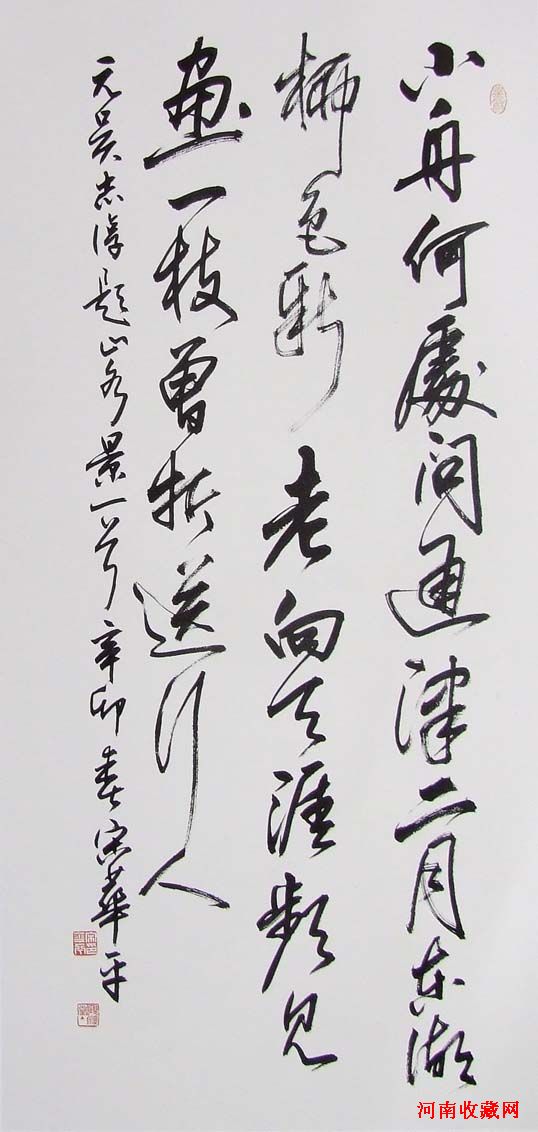 小舟何處问通津二月东湖
柳色新老向天涯频见
画一枝曾折送行人
元吴志淳题山水景一首辛卯春宋华平
河南收藏网